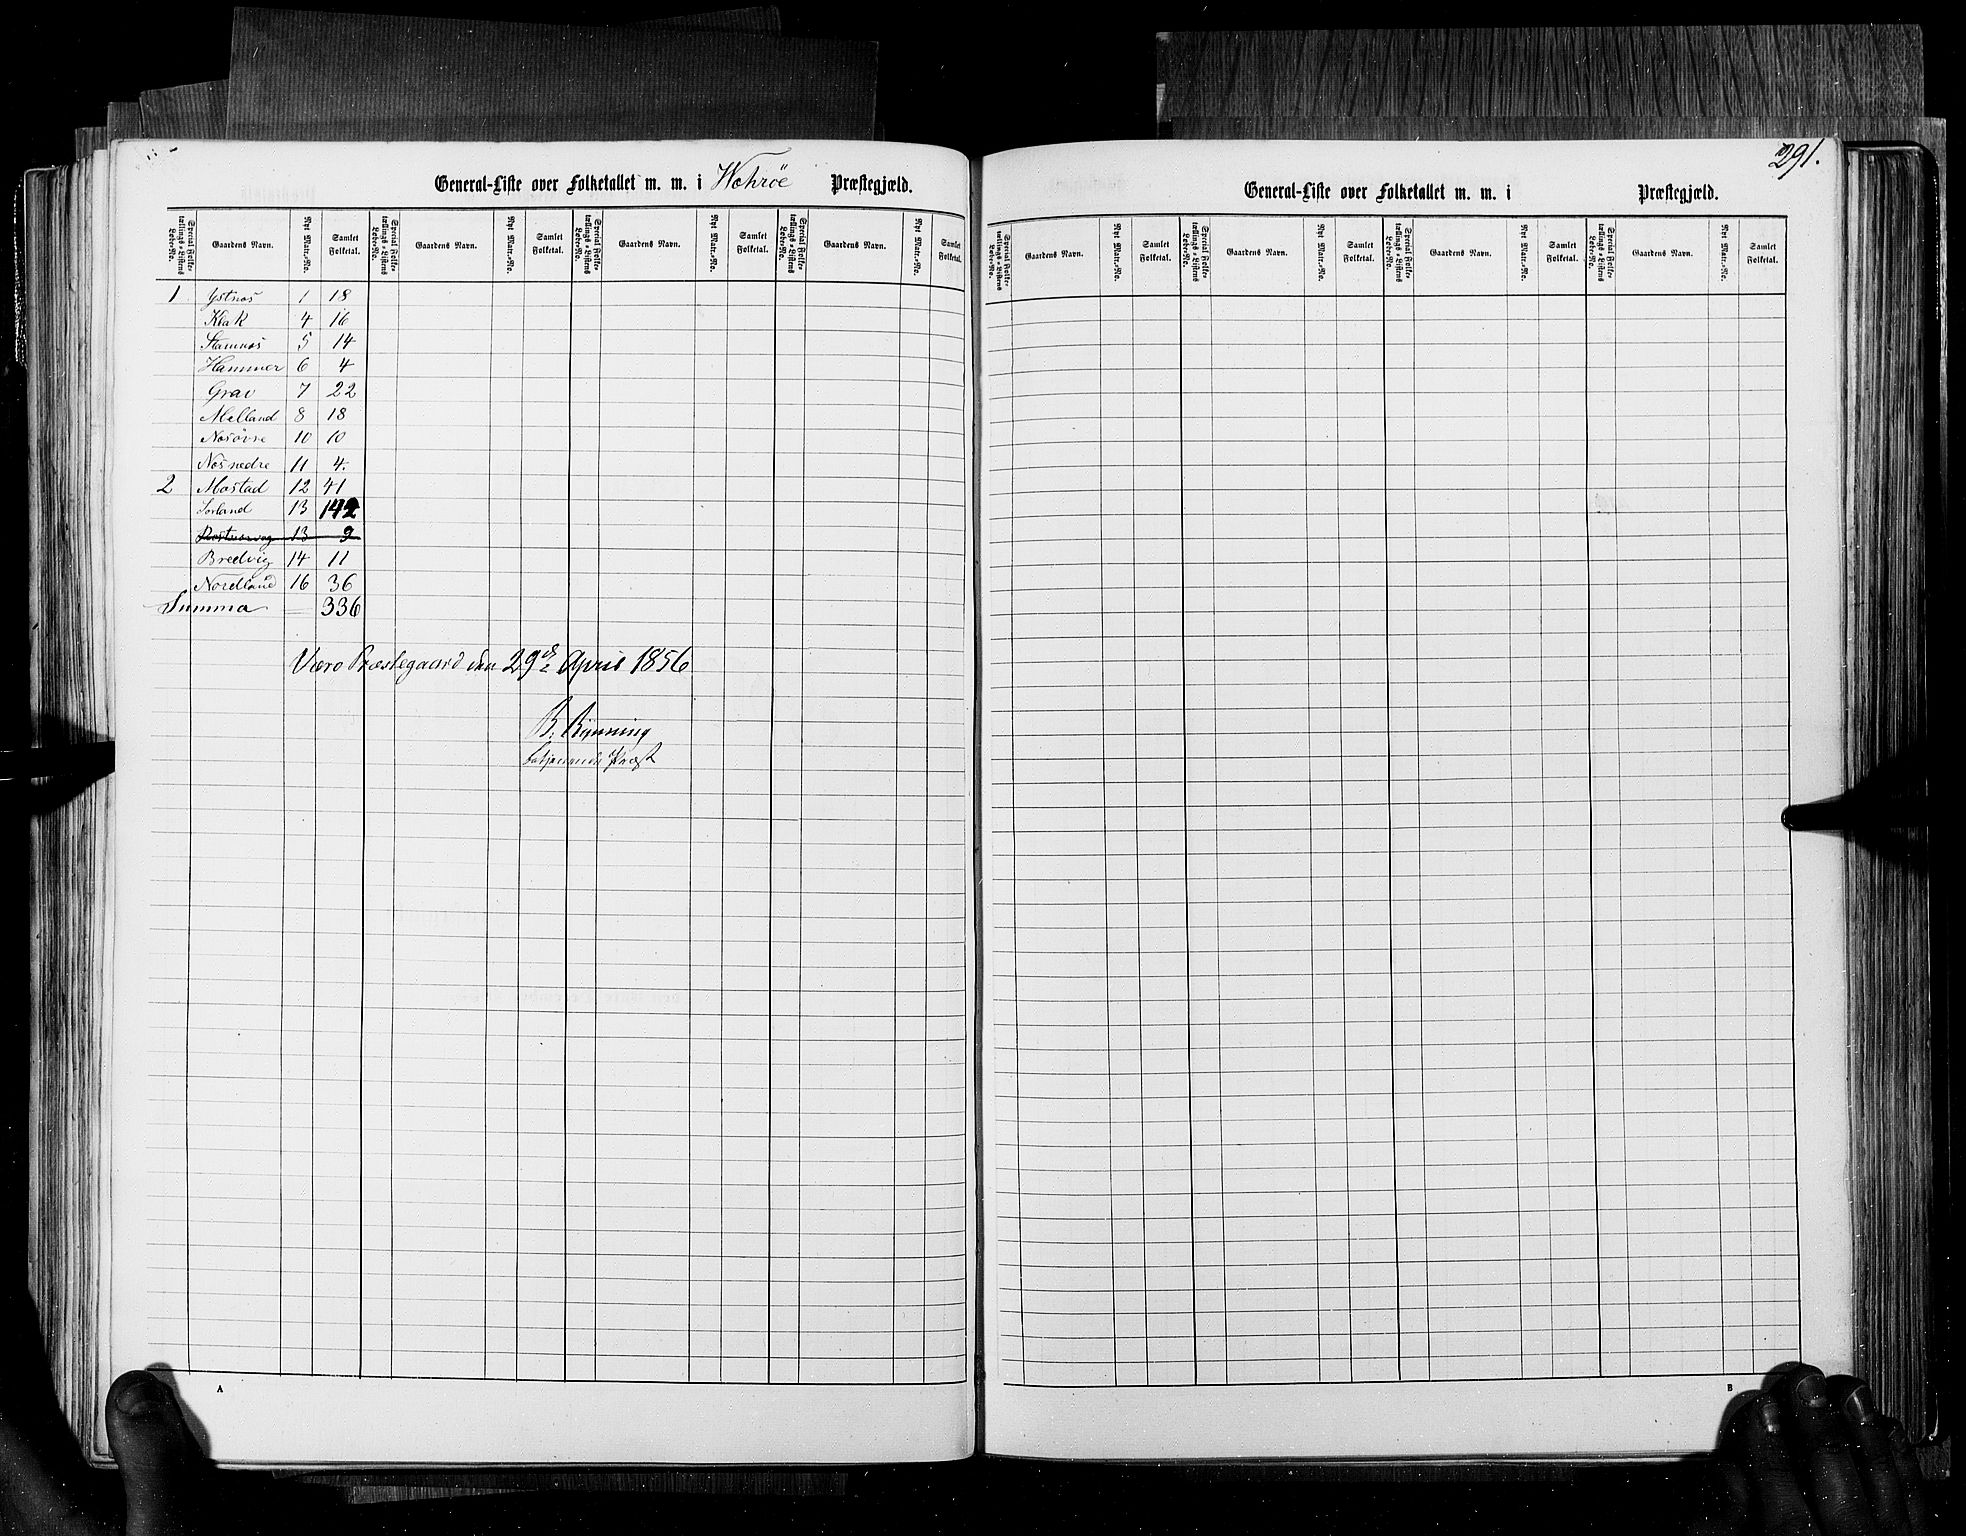 General-Liste over Folketallet m. m. i Wærøe Præstegjæld.
Special Folketællings-Listens Løbe-No. Gaardens Navn. Nyt Matr.-No. Samlet Folketal. Special Folketællings-Listens Løbe-No. Gaardens Navn. Nyt Matr.-No. Samlet Folketal. Special Folketællings-Listens Løbe-No. Gaardens Navn. Nyt Matr.-No. Samlet Folketal. Special Folketællings-Listens Løbe-No. Gaardens Navn. Nyt Matr.-No. Samlet Folketal.
1 Ystnæs 1 18
Klak 4 16
Stamnæs 5 14
Hammer 6 4
Grav 7 22
Melland 8 18
Næs øvre 10 10
Næs nedre 11 4.
2 Mostad 12 41
Sørland 13 142
13 9
Bredvig 14 11
Nordland 16 36
Summa 336
Værø Præstegaard den 29de April 1856
B. Rynning
Præst
A
291.
General-Liste over Folketallet m. m. i Præstegjæld.
Special Folketællings-Listens Løbe-No. Gaardens Navn. Nyt Matr.-No. Samlet Folketal. Special Folketællings-Listens Løbe-No. Gaardens Navn. Nyt Matr.-No. Samlet Folketal. Special Folketællings-Listens Løbe-No. Gaardens Navn. Nyt Matr.-No. Samlet Folketal. Special Folketællings-Listens Løbe-No. Gaardens Navn. Nyt Matr.-No. Samlet Folketal.
B